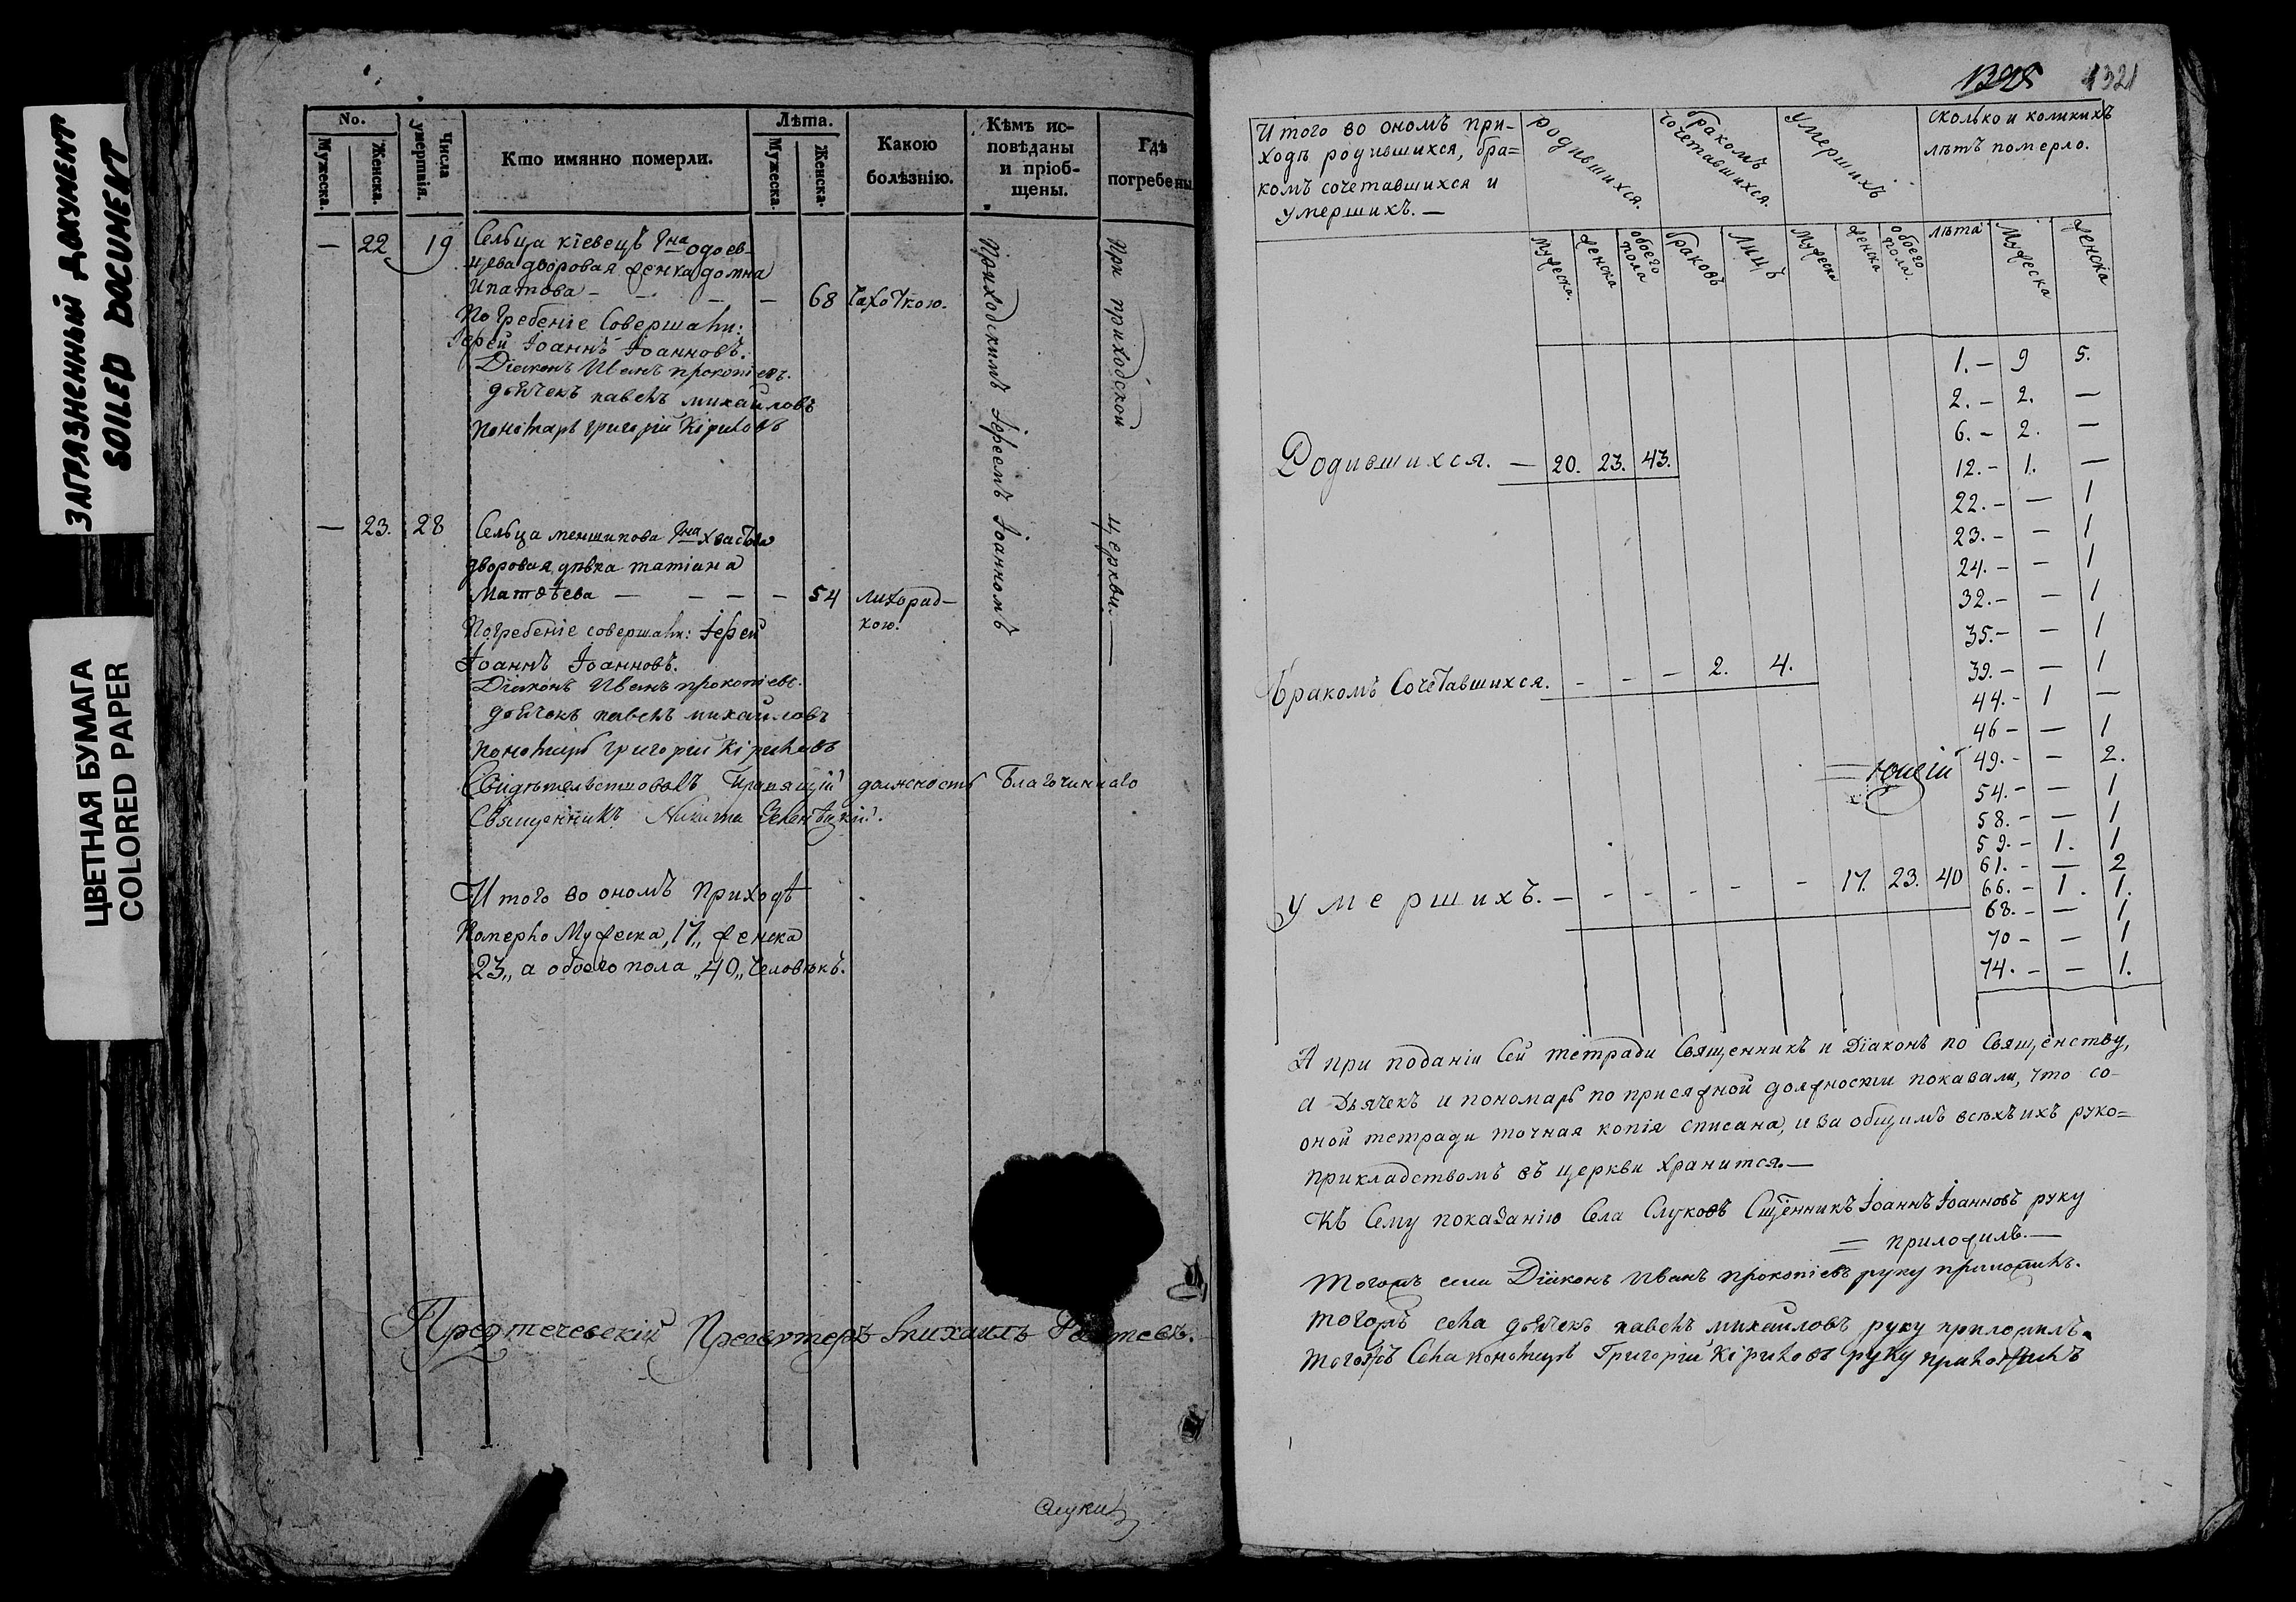 ЗАГРЯЗНЕННЫЙ ДОКУМЕНТ
SOILED DOCUMENT
ЦВЕТНАЯ БУМАГА
COLORED PAPER
No.
Мужеска.
Женска.
Числа умертвія.
Кто имянно померли.
Лѣта.
Мужеска.
Женска.
Какою болѣзнію.
Кѣмъ исповѣданы и пріобщены.
Гдѣ погребены
— 22 19 Сельца кіевецъ гна одоев-
цева дворовая женка домна
Ипатова — — — — 68 чахоткою.
Погребеніе Совершали:
Іерей Іоаннъ Іоанновъ.
Діаконъ Иванъ прокопіевъ.
дьячекъ павелъ михайловъ
пономарь григорій Кириловъ
Приходскимъ Іереемъ Іоанномъ
При приходской церкви.—
— 23. 28 Сельца меншикова гна хвастова
дворовая дѣвка татіана
Матѳѣева — — — — 54 лихорад-
кою.
Погребеніе совершали: Іерей
Іоаннъ Іоанновъ.
Діаконъ Иванъ прокопіевъ.
дьячекъ павелъ михайловъ
пономарь григорій Кириловъ
Свидѣтельствовалъ Правящій должность Благочиннаго
Священникъ Никита
Итого во ономъ приходѣ
Померло Мужеска „17„ женска
23„ а обоего пола „40„ человѣкъ.
Предтечевскій Пресвитеръ Михаилъ
1321
Итого во ономъ при-
ходѣ родившихся, бра=
комъ сочетавшихся и
умершихъ.—
родившихся.
бракомъ сочетавшихся.
умершихъ
сколько и коликихъ
лѣтъ померло.
мужеска.
женска
обоего пола
браковъ
лицъ
мужеска
женска
обоего пола.
лѣта
мужеска
женска
1.— 9 5.
2.— 2. —
6.— 2. —
Родившихся. — 20. 23. 43.
12.— 1. —
22.— — 1
23.— — 1
24.— — 1
32.— — 1
35.— — 1
Бракомъ Сочетавшихся. — — — 2. 4.
39.— — 1
44.— 1 —
46— — 1
49.— — 2.
54.— — 1
58.— — 1
59.— 1. 1
61.— — 2
Умершихъ. — — — — — — 17. 23. 40
66.— 1. 1.
68.— — 1
70— — 1
74.— — 1.
А при поданіи Сей тетради Священникъ и Діаконъ по Священству,
а Дьячекъ и пономарь по присяжной должности показали, что со-
оной тетради точная копія списана, и за общимъ всѣхъ ихъ руко=
прикладствомъ въ церкви хранится.—
Къ Сему показанію Села Слуковъ Сщенникъ Іоаннъ Іоанновъ руку
= приложилъ.—
тогожъ села Діаконъ Иванъ прокопіевъ руку приложилъ.
тогожъ села дьячекъ павелъ михайловъ руку приложилъ.
тогожъ Села пономарь Григорій Кириловъ руку приложилъ